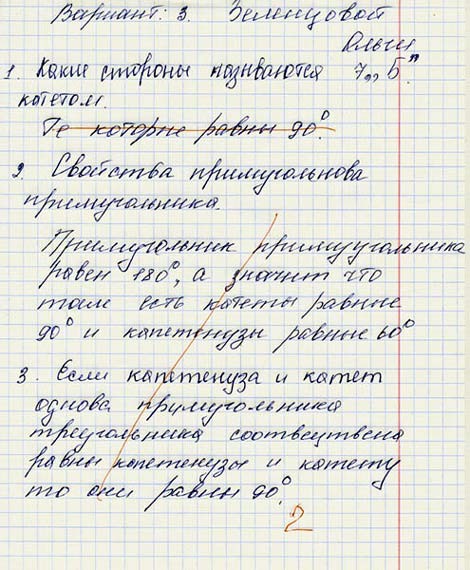 Вариант: 3. Зеленцовой
Альги
1. Какие стороны называются 7„Б"
катетом.
Те которые равны 90°.
2. Свойства примугольнова
примугольника.
Примиугольник примиуугольника
равен 180°, а значит что
там есть катеты равные
90° и капетенузы равные 60°
3. Если капетенуза и катет
однова прумиугольника
треугольника соотвсутвена
равны капетенузы и катету
то они равны 90°.
2